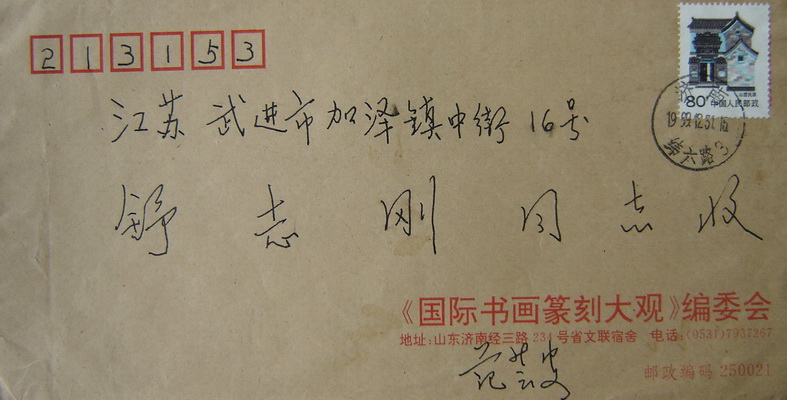 213153
80 中国人民邮政
济南
1999.12.31.16
江苏武进市加泽镇中街16号
舒志刚同志收
《国际书画篆刻大观》编委会
地址:山东济南经三路234号省文联宿舍 电话:(0531)7937267
邮政编码250021